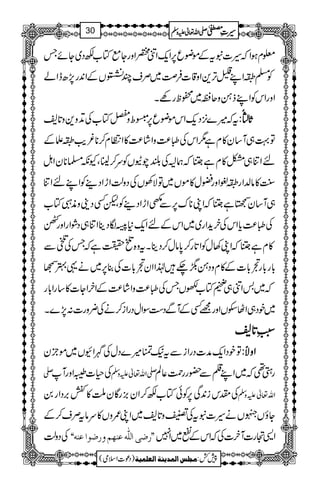 30 سیرتِ مصطفیٰ صلی اللہ علیہ وسلم
معلوم ہوا کہ سیرت نبویہ کے موضوع پر ایک ایسی مختصر اور جامع کتاب لکھ دی جائے جس
کو مسلم طبقہ اپنے قلیل ترین اوقاتِ فرصت میں صرف چند نشستوں کے اندر پڑھ ڈالے
اور اس کو اپنے ذہن و حافظہ میں محفوظ رکھے۔
ثالثاً: یہ کہ میرے نزدیک اس موضوع پر مبسوط و مفصل کتاب کی تدوین و تالیف
تو بہت ہی آسان کام ہے مگر اس کی طباعت و اشاعت کا انتظام کرنا غریب طبقہ علماء کے
لئے اتنا ہی مشکل کام ہے جتنا کہ ہمالیہ کی بلند چوٹیوں کو سر کر لینا، کیونکہ مسلمانانِ اہل
سنت کا مالدار طبقہ لغو اور فضول کاموں میں تو لاکھوں کی دولت اڑا دینے کو اپنے لئے اتنا
ہی آسان سمجھتا ہے جتنا کہ اپنی ناک پر سے مکھی اڑا دینے کو لیکن کسی دینی و مذہبی کتاب
کی طباعت یا اس کی خریداری میں اس کے لئے ایک پیسہ لگا دینا اتنا ہی دشوار اور کٹھن
کام ہے جتنا کہ اپنی کھال کو اتار کر پامال کر دینا۔ یہ وہ تلخ حقیقت ہے کہ جس کی تلخی سے
بار بار تجربات کے کام و دہن بگڑ چکے ہیں لہٰذا ان تجربات کی بناء پر میں نے یہی بہتر سمجھا
کہ میں بس اتنی ہی ضخیم کتاب لکھوں جس کی طباعت و اشاعت کے اخراجات کا سارا بار
میں خود ہی اٹھا سکوں اور مجھے کسی کے آگے دستِ سوال دراز کرنے کی ضرورت نہ پڑے۔
سببِ تالیف
اولاً: تو خود ایک مدت دراز سے یہ نیک تمنا میرے دل کی گہرائیوں میں موجزن
رہتی تھی کہ میں اپنے قلم سے حضورِ رحمتِ عالم صلی اللہ علیہ وسلم کی حیاتِ طیبہ اور آپ صلی
اللہ علیہ وسلم کی مقدس زندگی پر کوئی کتاب لکھ کر ان بزرگانِ ملت کا کفش بردار بن
جاؤں جنہوں نے سیرت نبویہ کی تصنیف و تالیف میں اپنی عمروں کا سرمایہ صرف کر کے
ایسی تجارتِ آخرت کی کہ اس کے نفع میں انہیں "رضی اللہ عنہم ورضوا عنہ" کی دولت
پیش کش: مجلس المدینۃ العلمیۃ (دعوتِ اسلامی)